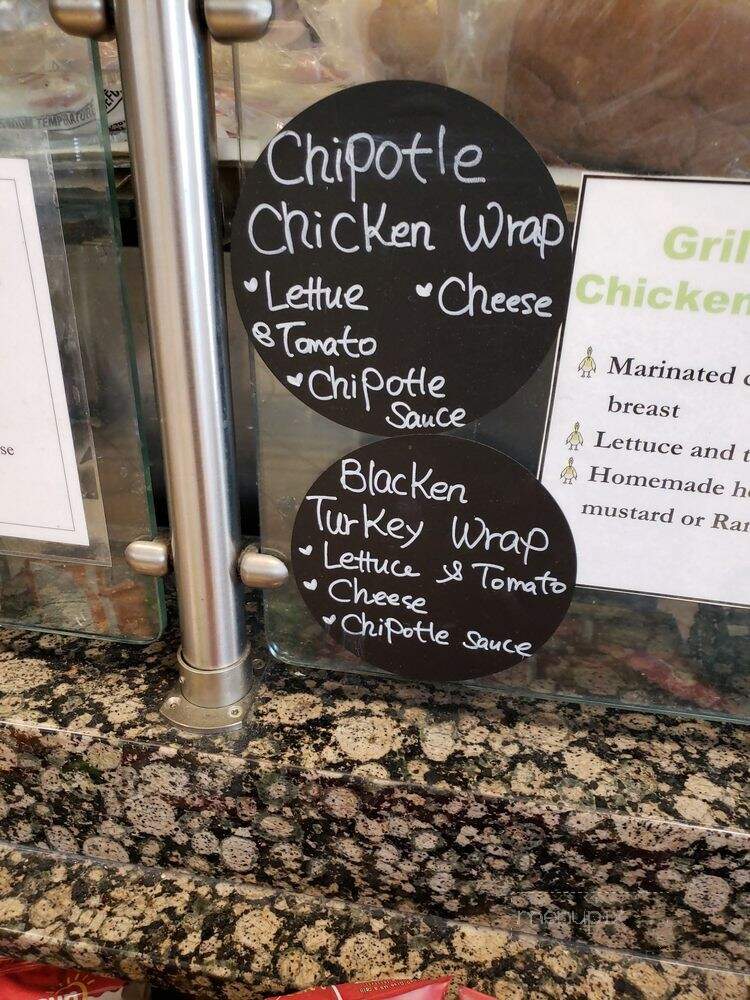 Chipotle
Chicken Wrap
Lettue
Cheese
& Tomato
Chipotle
Sauce
Blacken
Turkey Wrap
Lettuce & Tomato
Cheese
Chipotle sauce
Gril
Chicken
Marinated c
breast
Lettuce and t
Homemade ho
mustard or Ran
se
menupix